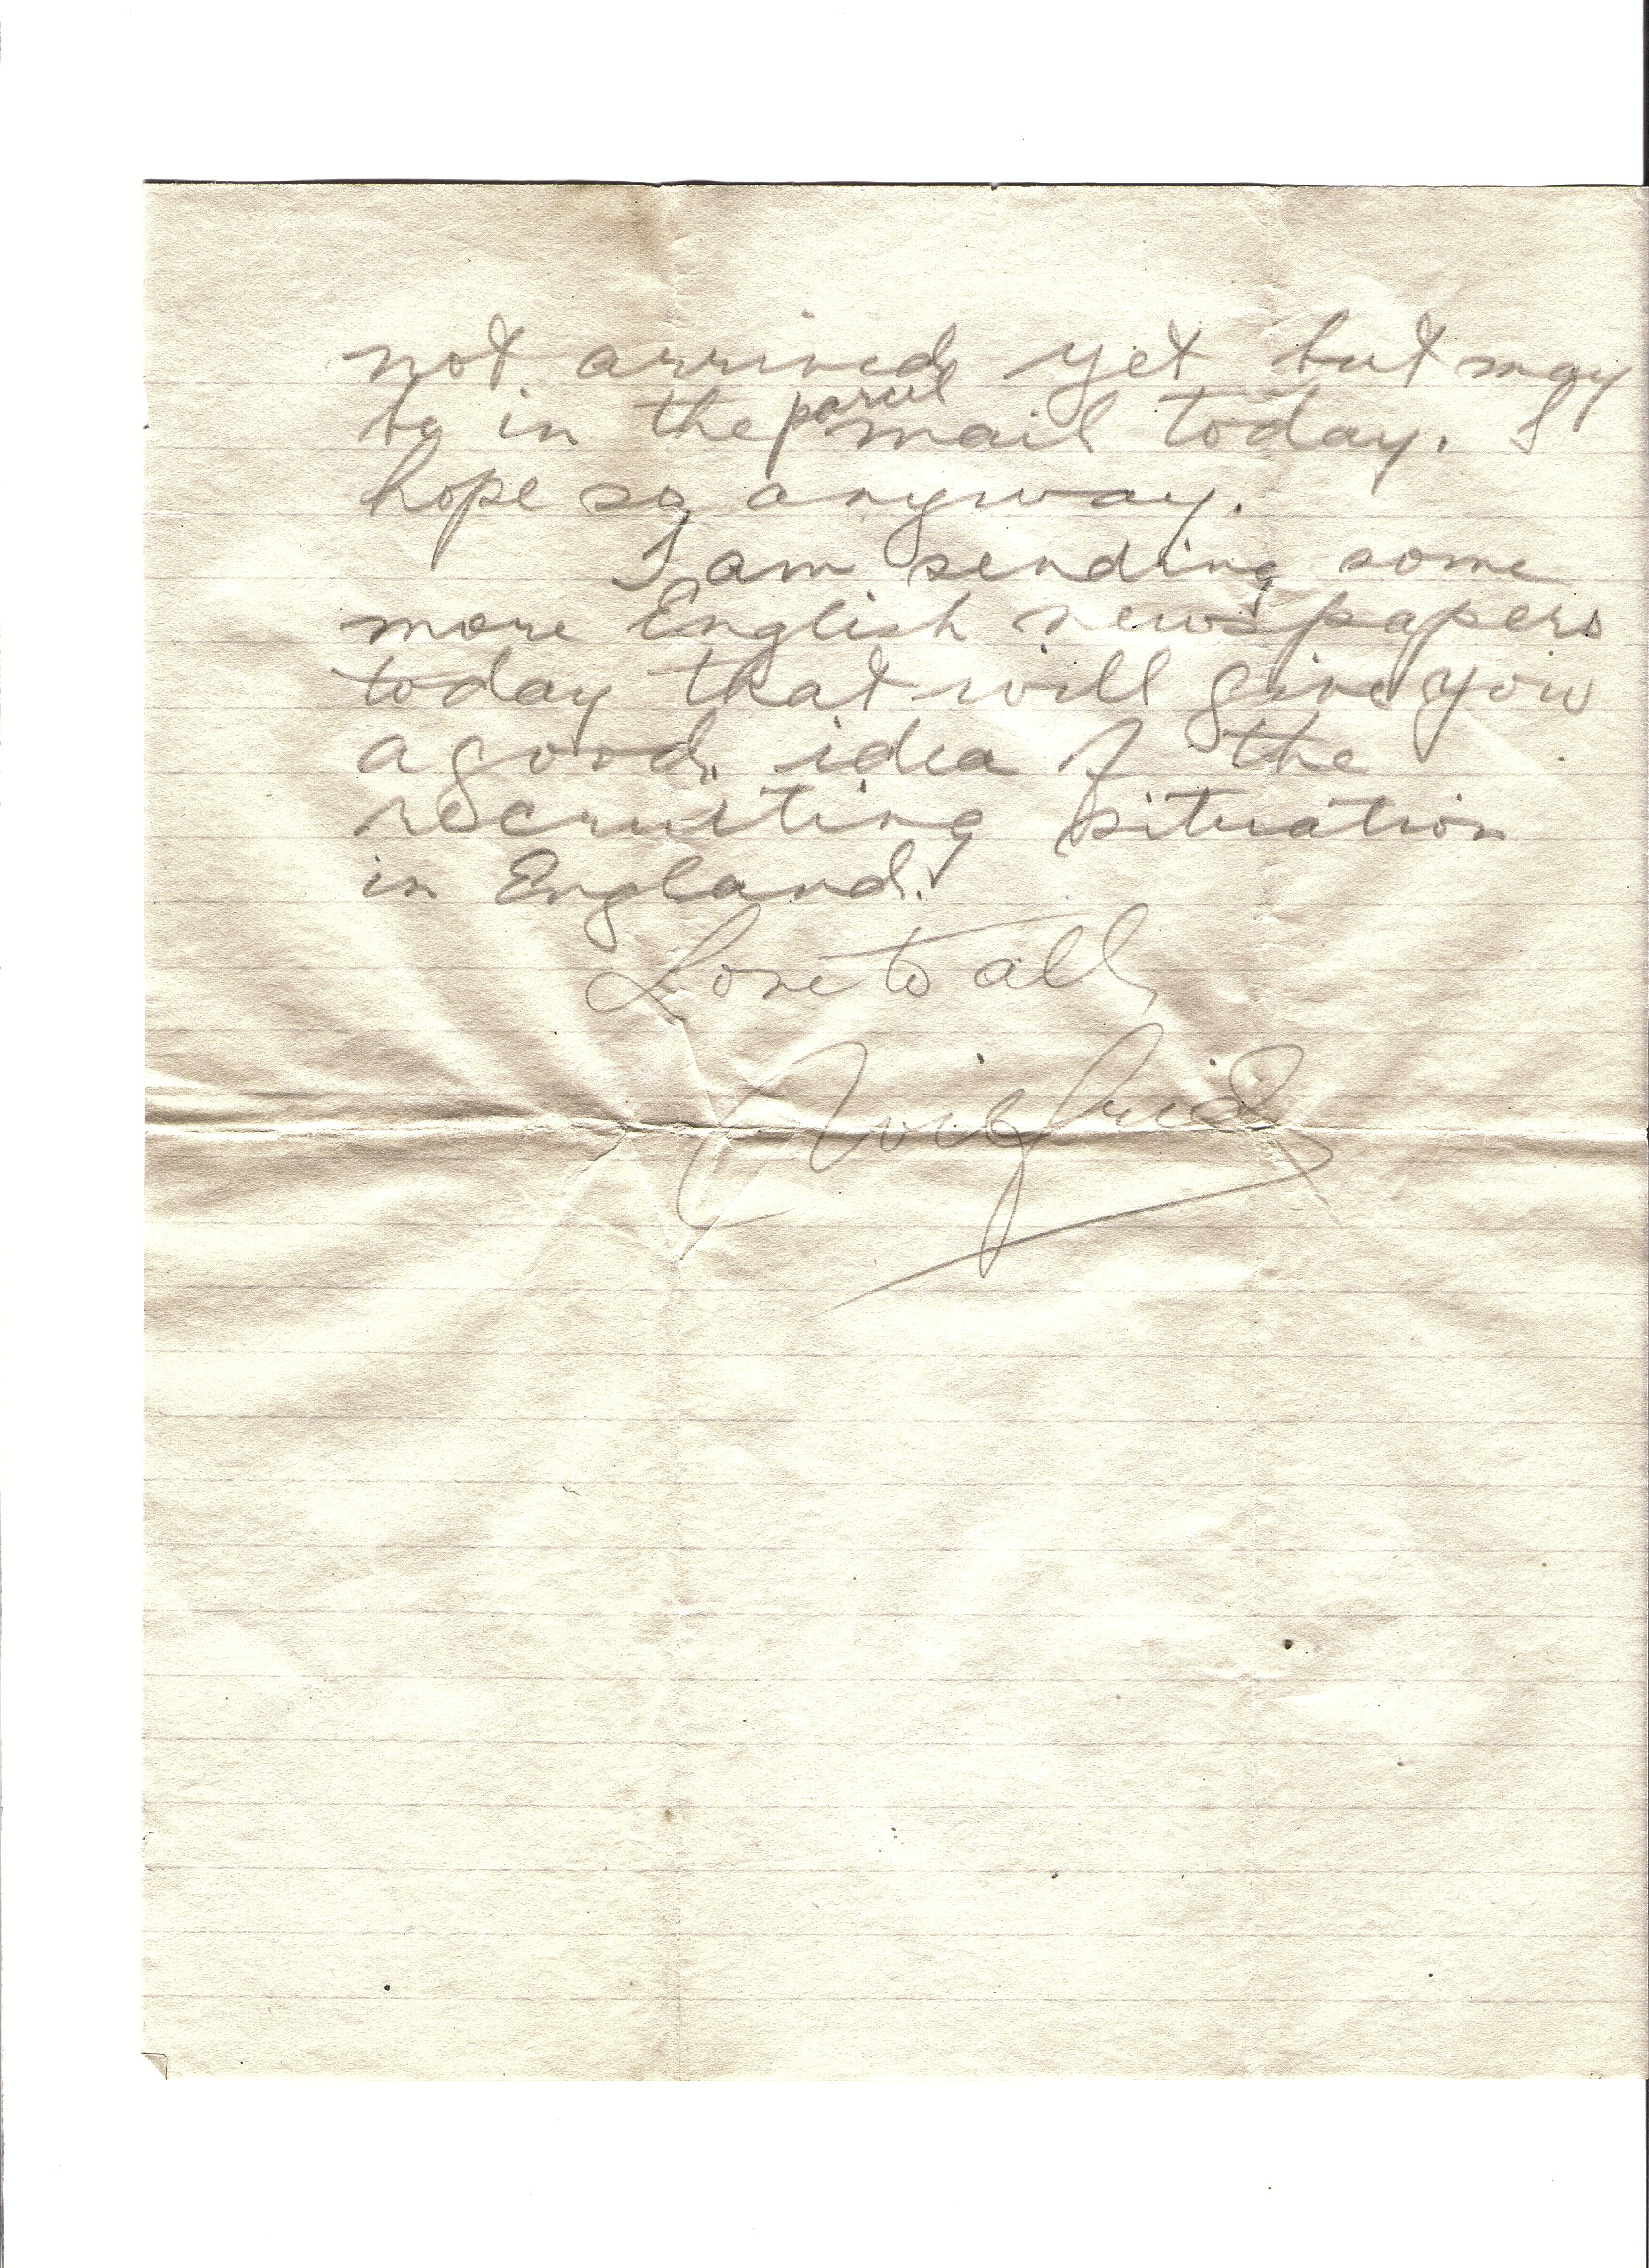 not arrived yet but may
be in the parcel mail today. I
hope so anyway.
I am sending some
more English newspapers
today that will give you
a good idea of the
recruiting situation
in England.
Love to all
Wilfrid